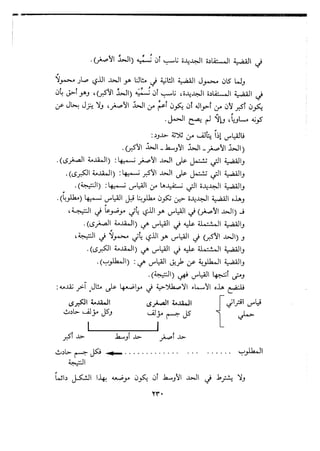 في القضية المستفادة الجديدة ناسب أن نُسمّيه (الحدّ الأصغر).
ولما كان محمول القضية الثانية في مثالنا هو الحد الذي صار محمولاً
في القضية المستفادة الجديدة، ناسب أن نُسمّيه (الحدّ الأكبر)، وهو أحرى بأن
يكون أكبر لأن من أحواله أن يكون أعمّ من الحد الأصغر، ولا ينزل عن حال
كونه مساوياً، وإلا لم يصح الحمل.
فالقياس إذاً يتألف من ثلاثة حدود:
(الحدّ الأصغر - الحد الأوسط - الحد الأكبر).
والقضية التي تشتمل على الحد الأصغر نسميها: (المقدمة الصغرى).
والقضية التي تشتمل على الحد الأكبر نسميها: (المقدمة الكبرى).
والقضية الجديدة التي نستفيدها من القياس نسميها: (النتيجة).
وهذه القضية الجديدة حين تكون مطلوبة قبل القياس نسميها (مطلوباً).
فـ (الحد الأصغر) في القياس هو الذي يأتي موضوعاً في النتيجة،
والقضية المشتملة عليه في القياس هي (المقدمة الصغرى).
و (الحد الأكبر) في القياس هو الذي يأتي محمولاً في النتيجة،
والقضية المشتملة عليه في القياس هي (المقدمة الكبرى).
والقضية المطلوبة عن طريق القياس هي: (المطلوب).
ومتى أنتجها القياس فهي (النتيجة).
فلنضع هذه الأسماء الاصطلاحية في مواضعها على مثال آخر نقدمه:
المقدمة الصغرى المقدمة الكبرى
قياس اقتراني حملي كل جسم مؤلف وكل مؤلف حادث
حد أصغر حد أوسط حد أكبر
المطلوب ...... ............. فكل جسم حادث
النتيجة
ولا يشترط في الحد الأوسط أن يكون موضعه بهذا الشكل دائماً
٢٣٠